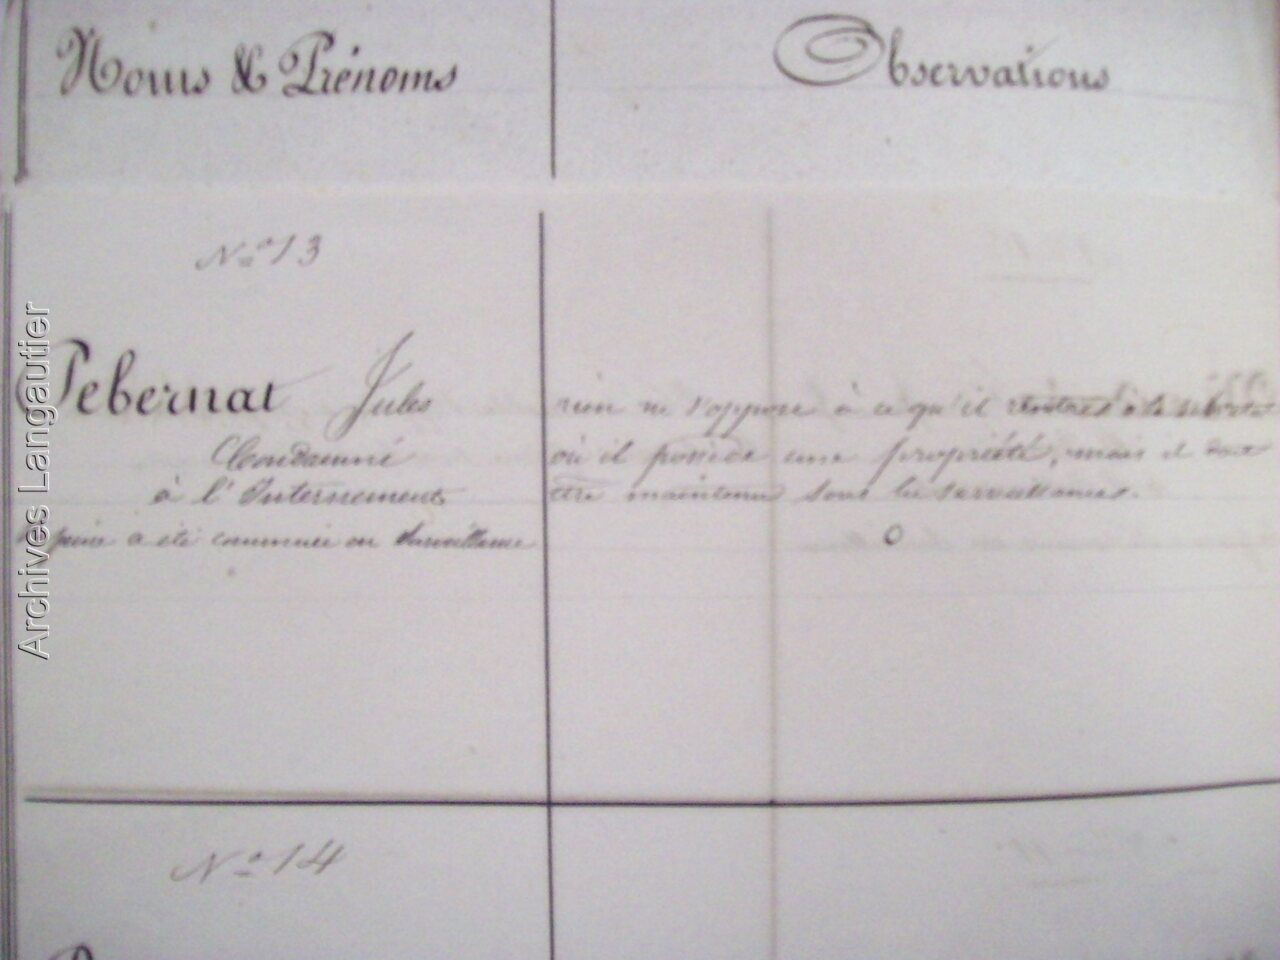 Noms & Prénoms
Observations
No 13
Pebernat Jules
Condamné
à l'Internement
peine a été commuée en Surveillance
rien ne s'oppose à ce qu'il
où il possède une propriété, mais il doit
être maintenu sous la surveillance.
No 14
Archives Langautier